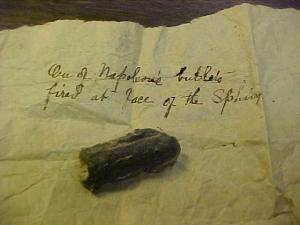 One of Napoleon's bullets
fired at face of the Sphinx